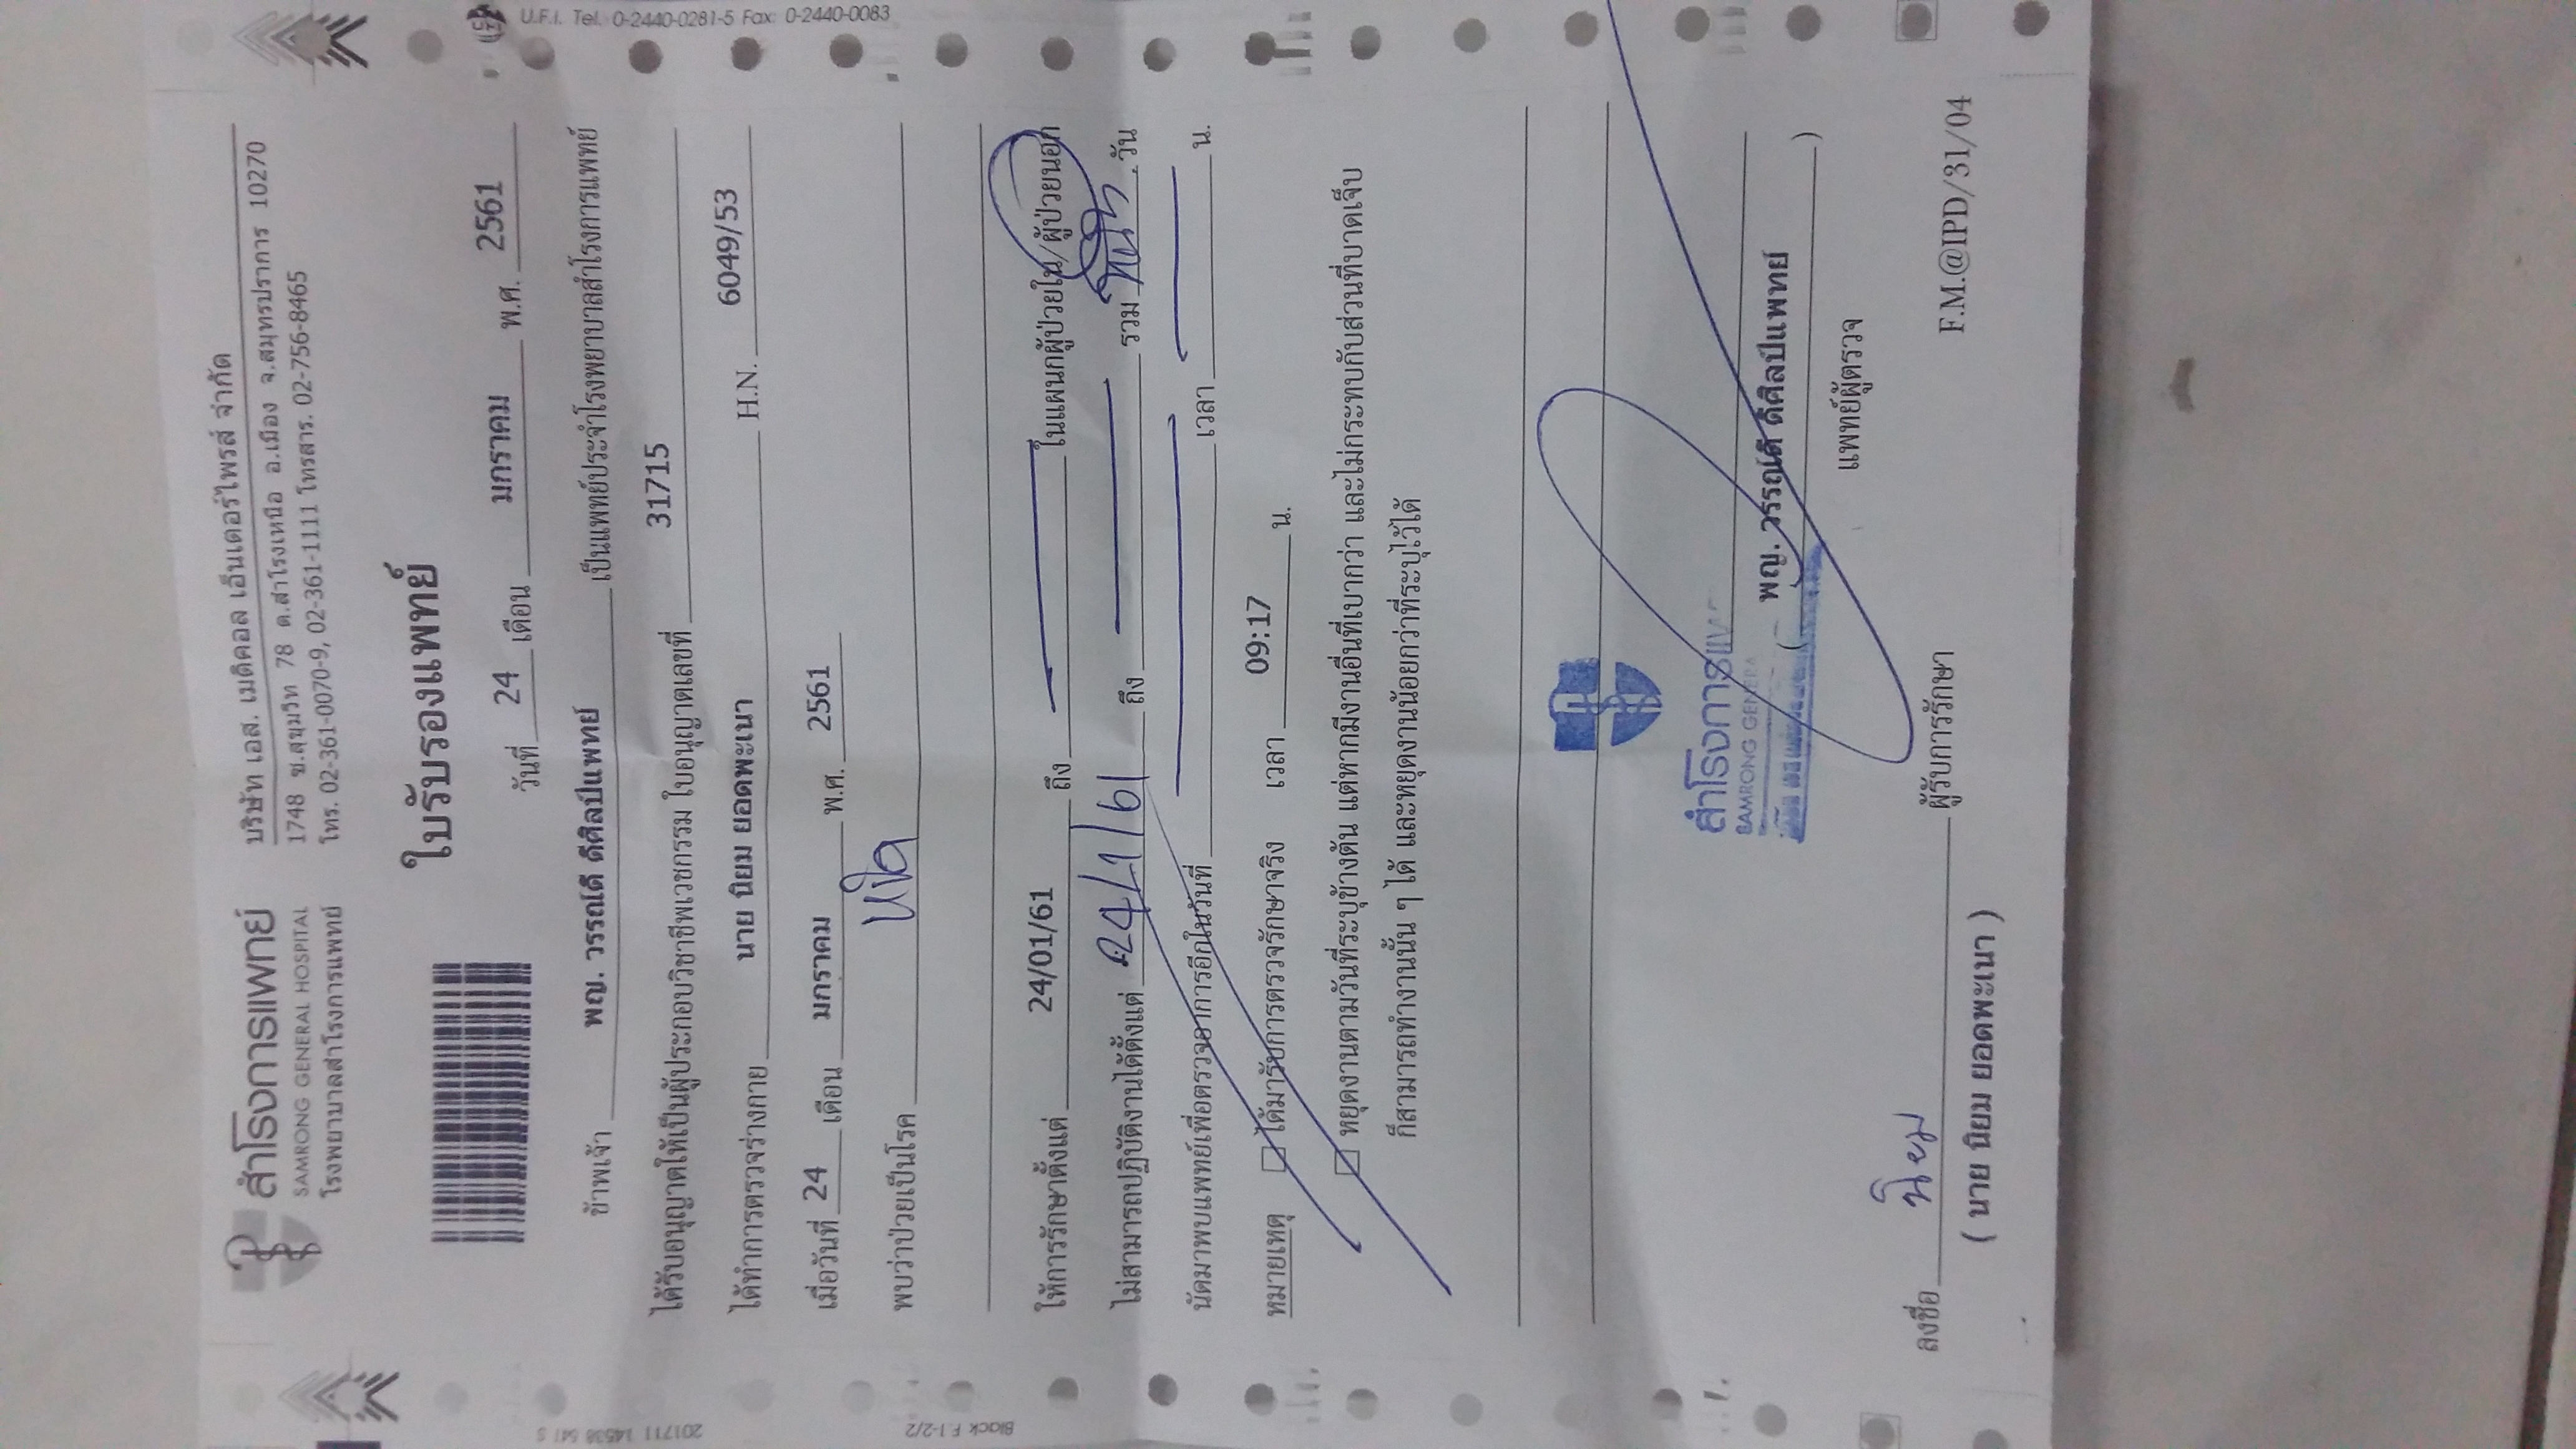 สำโรงการแพทย์
SAMRONG GENERAL HOSPITAL
โรงพยาบาลสำโรงการแพทย์
บริษัท เอส. เมดิคอล เอ็นเตอร์ไพรส์ จำกัด
1748 ซ.สุขุมวิท 78 ต.สำโรงเหนือ อ.เมือง จ.สมุทรปราการ 10270
โทร. 02-361-0070-9, 02-361-1111 โทรสาร. 02-756-8465
ใบรับรองแพทย์
วันที่ 24 เดือน มกราคม พ.ศ. 2561
ข้าพเจ้า พญ. วรรณ์ดี ดีศิลป์แพทย์ เป็นแพทย์ประจำโรงพยาบาลสำโรงการแพทย์
ได้รับอนุญาตให้เป็นผู้ประกอบวิชาชีพเวชกรรม ใบอนุญาตเลขที่ 31715
ได้ทำการตรวจร่างกาย นาย นิยม ยอดพะเนา H.N. 6049/53
เมื่อวันที่ 24 เดือน มกราคม พ.ศ. 2561
พบว่าป่วยเป็นโรค
ให้การรักษาตั้งแต่ 24/01/61 ถึง ในแผนกผู้ป่วยใน/ผู้ป่วยนอก
ไม่สามารถปฏิบัติงานได้ตั้งแต่ 24/1/61 ถึง รวม วัน
นัดมาพบแพทย์เพื่อตรวจอาการอีกในวันที่ เวลา น.
หมายเหตุ ได้มารับการตรวจรักษาจริง เวลา 09:17 น.
หยุดงานตามวันที่ระบุข้างต้น แต่หากมีงานอื่นที่เบากว่า และไม่กระทบกับส่วนที่บาดเจ็บ
ก็สามารถทำงานนั้น ๆ ได้ และหยุดงานน้อยกว่าที่ระบุไว้ได้
สำโรงการแพ
SAMRONG GENERA
( พญ. วรรณ์ดี ดีศิลป์แพทย์ )
แพทย์ผู้ตรวจ
ลงชื่อ นิยม ผู้รับการรักษา
( นาย นิยม ยอดพะเนา )
F.M.@IPD/31/04
U.F.I. Tel. 0-2440-0281-5 Fax: 0-2440-0083
Black F.1-2/2